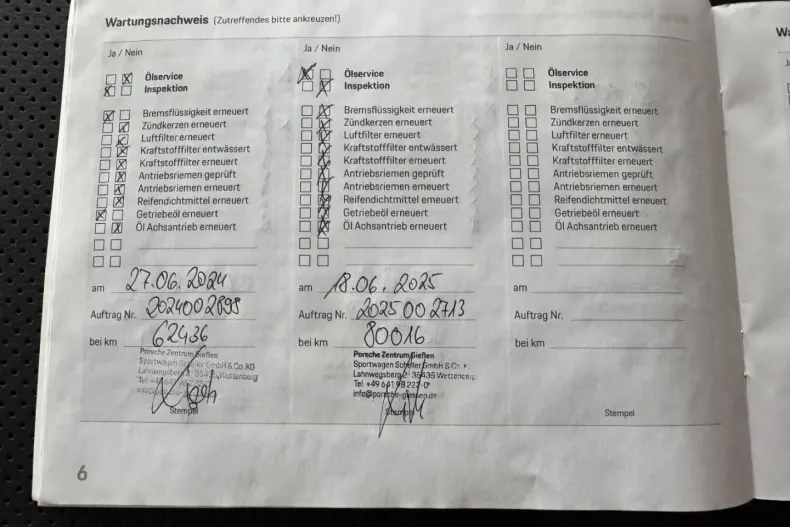 Wartungsnachweis (Zutreffendes bitte ankreuzen!)
Ja / Nein
Ölservice
Inspektion
Bremsflüssigkeit erneuert
Zündkerzen erneuert
Luftfilter erneuert
Kraftstofffilter entwässert
Kraftstofffilter erneuert
Antriebsriemen geprüft
Antriebsriemen erneuert
Reifendichtmittel erneuert
Getriebeöl erneuert
Öl Achsantrieb erneuert
am 27.06.2024
Auftrag Nr. 2024002898
bei km 62436
Porsche Zentrum Gießen
Sportwagen GmbH & Co. KG
Lahnwegsberg 35435 Wettenberg
Tel
Stempel
Ja / Nein
Ölservice
Inspektion
Bremsflüssigkeit erneuert
Zündkerzen erneuert
Luftfilter erneuert
Kraftstofffilter entwässert
Kraftstofffilter erneuert
Antriebsriemen geprüft
Antriebsriemen erneuert
Reifendichtmittel erneuert
Getriebeöl erneuert
Öl Achsantrieb erneuert
am 18.06.2025
Auftrag Nr. 2025002713
bei km 80016
Porsche Zentrum Gießen
Sportwagen GmbH & Co.
Lahnwegsberg 35435 Wettenberg
Tel +49 641 98 227-0
Stempel
Ja / Nein
Ölservice
Inspektion
Bremsflüssigkeit erneuert
Zündkerzen erneuert
Luftfilter erneuert
Kraftstofffilter entwässert
Kraftstofffilter erneuert
Antriebsriemen geprüft
Antriebsriemen erneuert
Reifendichtmittel erneuert
Getriebeöl erneuert
Öl Achsantrieb erneuert
am
Auftrag Nr.
bei km
Stempel
6